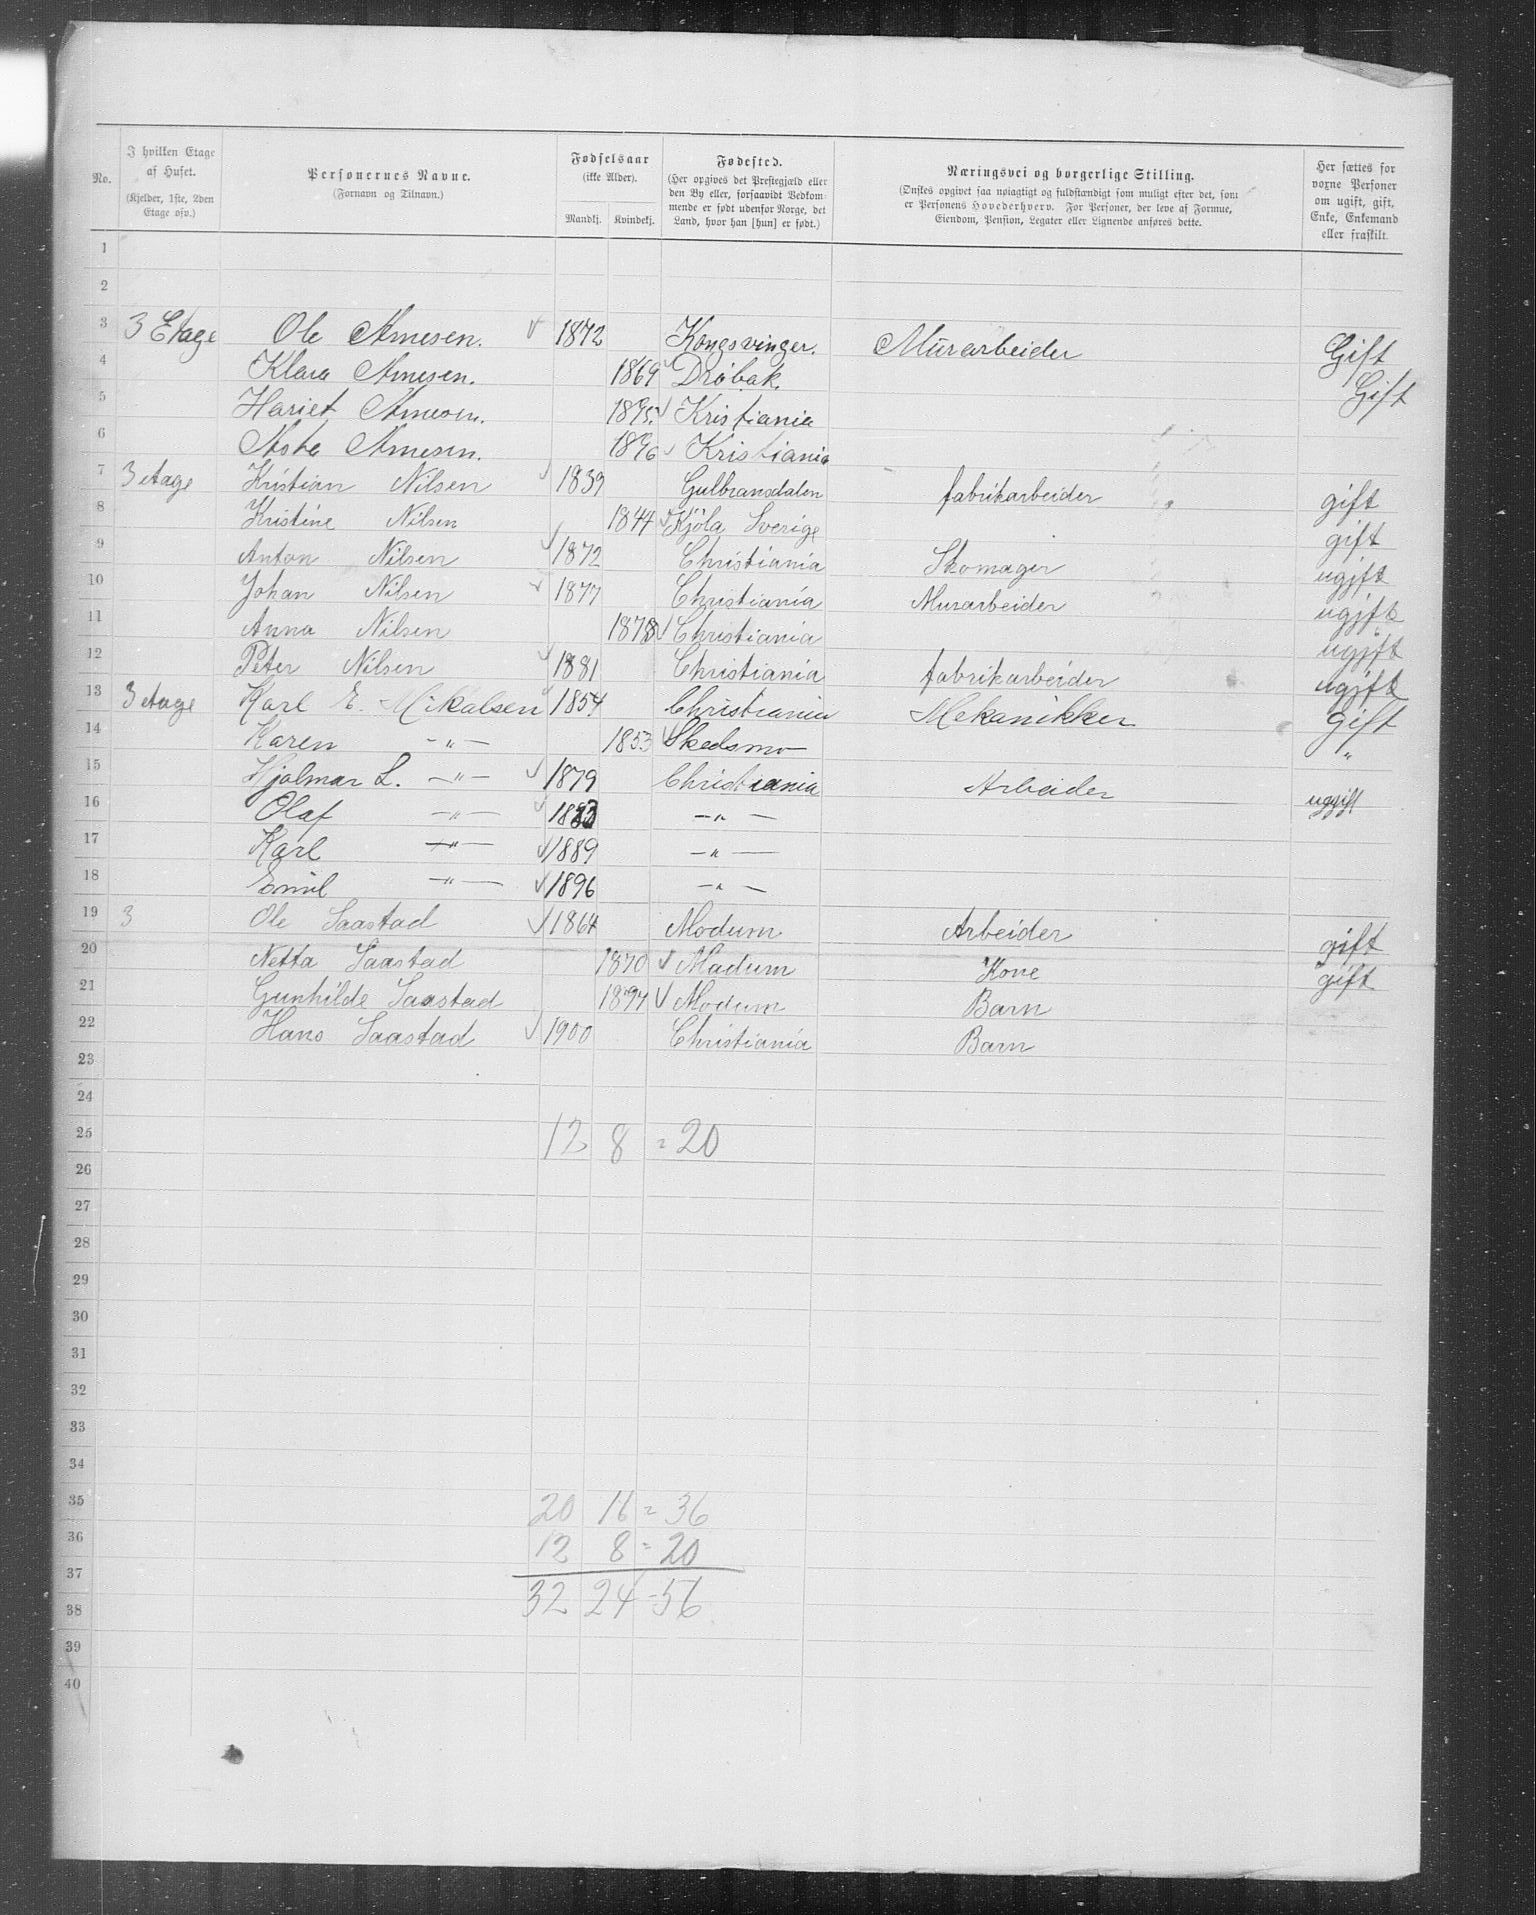 No. I hvilken Etage af Huset. (Kjelder, 1ste, 2den Etage osv.) Personernes Navne. (Fornavn og Tilnavn.) Fødselsaar (ikke Alder). Mandkj. Kvindekj. Fødested. (Her opgives det Prestegjæld eller den By eller, forsaavidt Vedkommende er født udenfor Norge, det Land, hvor han [hun] er født.) Næringsvei og borgerlige Stilling. (Ønskes opgivet saa nøiagtigt og fuldstændigt som muligt efter det, som er Personens Hovederhverv. For Personer, der leve af Formue, Eiendom, Pension, Legater eller Lignende anføres dette. Her sættes for voxne Personer om ugift, gift, Enke, Enkemand eller fraskilt.
1
2
3 3 Etage Ole Arnesen. √ 1872 Kongsvinger. Murarbeider Gift
4 Klara Arnesen. 1869 √ Drøbak. Gift
5 Hariet Arnesen. 1895. √ Kristiania
6 Arnesen. 1896 √ Kristiania
7 3 etage Kristian Nilsen √ 1839 Gulbransdalen fabrikarbeider gift
8 Kristine Nilsen 1844 √ Kjöla Sverige gift
9 Anton Nilsen √ 1872 Christiania Skomager ugift
10 Johan Nilsen √ 1877 Christiania Murarbeider ugift
11 Anna Nilsen 1878 √ Christiania ugift
12 Peter Nilsen √ 1881 Christiania fabrikarbeider ugift
13 3 etage Karl E. Mikalsen √ 1854 Christiania Mekanikker gift
14 Karen —"— 1853 √ Skedsmo "
15 Hjalmar L. —"— √ 1879 Christiania Arbeider ugift
16 Olaf —"— √ 1883 —"—
17 Karl —"— √ 1889 —"—
18 Emil —"— √ 1896 —"—
19 3 Ole Saastad √ 1864 Modum Arbeider gift
20 Netta Saastad 1870 √ Modum Kone gift
21 Gunhilde Saastad 1897 √ Modum Barn
22 Hans Saastad √ 1900 Christiania Barn
23
24
25 12 8 = 20
26
27
28
29
30
31
32
33
34
35 20 16 = 36
36 12 8 = 20
37
38 32 24 - 56
39
40